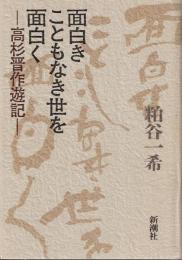 面白き
こともなき世を
面白く
―高杉晋作遊記―
粕谷一希
新潮社